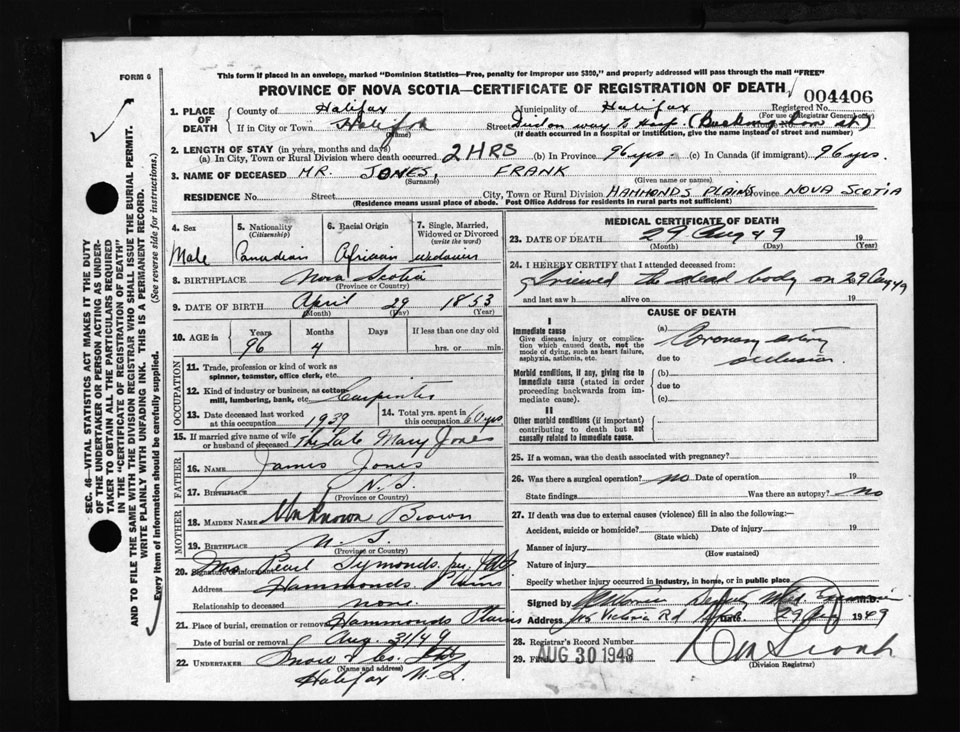 FORM 6
This form if placed in an envelope, marked "Dominion Statistics—Free, penalty for improper use $300," and properly addressed will pass through the mail "FREE"
PROVINCE OF NOVA SCOTIA—CERTIFICATE OF REGISTRATION OF DEATH
004406
1. PLACE OF DEATH
County of Halifax Municipality of Halifax Registered No.
(For use of Registrar General only)
If in City or Town Halifax Street Died on way to Hosp. (Buckingham St.)
(Name) (If death occurred in a hospital or institution, give the name instead of street and number)
2. LENGTH OF STAY (in years, months and days)
(a) In City, Town or Rural Division where death occurred 2 HRS (b) In Province 96 yrs. (c) In Canada (if immigrant) 96 yrs.
3. NAME OF DECEASED MR. JONES, FRANK
(Surname) (Given name or names)
RESIDENCE No. Street City, Town or Rural Division HAMMONDS PLAINS Province NOVA SCOTIA
(Residence means usual place of abode. Post Office Address for residents in rural parts not sufficient)
4. Sex 5. Nationality (Citizenship) 6. Racial Origin 7. Single, Married, Widowed or Divorced (write the word)
Male Canadian African widower
8. BIRTHPLACE Nova Scotia
(Province or Country)
9. DATE OF BIRTH April 29 1853
(Month) (Day) (Year)
10. AGE in Years Months Days If less than one day old
96 4 hrs. or min.
OCCUPATION
11. Trade, profession or kind of work as spinner, teamster, office clerk, etc.
12. Kind of industry or business, as cotton mill, lumbering, bank, etc. Carpenter
13. Date deceased last worked at this occupation 1939 14. Total yrs. spent in this occupation 60 yrs
15. If married give name of wife or husband of deceased The late Mary Jones
FATHER
16. NAME James Jones
17. BIRTHPLACE N.S.
(Province or Country)
MOTHER
18. MAIDEN NAME Unknown Brown
19. BIRTHPLACE N.S.
(Province or Country)
20. Signature of informant Mrs Pearl Symonds per
Address Hammonds Plains
Relationship to deceased none.
21. Place of burial, cremation or removal Hammonds Plains
Date of burial or removal Aug. 31/49
22. UNDERTAKER Snow & Co. Ltd
(Name and address)
Halifax N.S.
MEDICAL CERTIFICATE OF DEATH
23. DATE OF DEATH 29 Aug 49 19
(Month) (Day) (Year)
24. I HEREBY CERTIFY that I attended deceased from:
I viewed the dead body on 29 Aug 49
and last saw h alive on 19
CAUSE OF DEATH
I
Immediate cause
Give disease, injury or complication which caused death, not the mode of dying, such as heart failure, asphyxia, asthenia, etc.
(a) Coronary artery
due to occlusion
Morbid conditions, if any, giving rise to immediate cause (stated in order proceeding backwards from immediate cause).
(b)
due to
(c)
II
Other morbid conditions (if important) contributing to death but not causally related to immediate cause.
25. If a woman, was the death associated with pregnancy?
26. Was there a surgical operation? no Date of operation 19
State findings Was there an autopsy? no
27. If death was due to external causes (violence) fill in also the following:—
Accident, suicide or homicide? Date of injury 19
(State which)
Manner of injury
(How sustained)
Nature of injury
Specify whether injury occurred in industry, in home, or in public place.
Signed by Deputy Med Examiner M.D.
Address Victoria Rd Date 29 Aug 1949
28. Registrar's Record Number
29. Filed AUG 30 1949
(Division Registrar)
SEC. 46—VITAL STATISTICS ACT MAKES IT THE DUTY
OF THE UNDERTAKER OR PERSON ACTING AS UNDERTAKER TO OBTAIN ALL THE PARTICULARS REQUIRED
IN THE "CERTIFICATE OF REGISTRATION OF DEATH"
AND TO FILE THE SAME WITH THE DIVISION REGISTRAR WHO SHALL ISSUE THE BURIAL PERMIT.
WRITE PLAINLY WITH UNFADING INK. THIS IS A PERMANENT RECORD.
Every item of information should be carefully supplied. (See reverse side for instructions.)